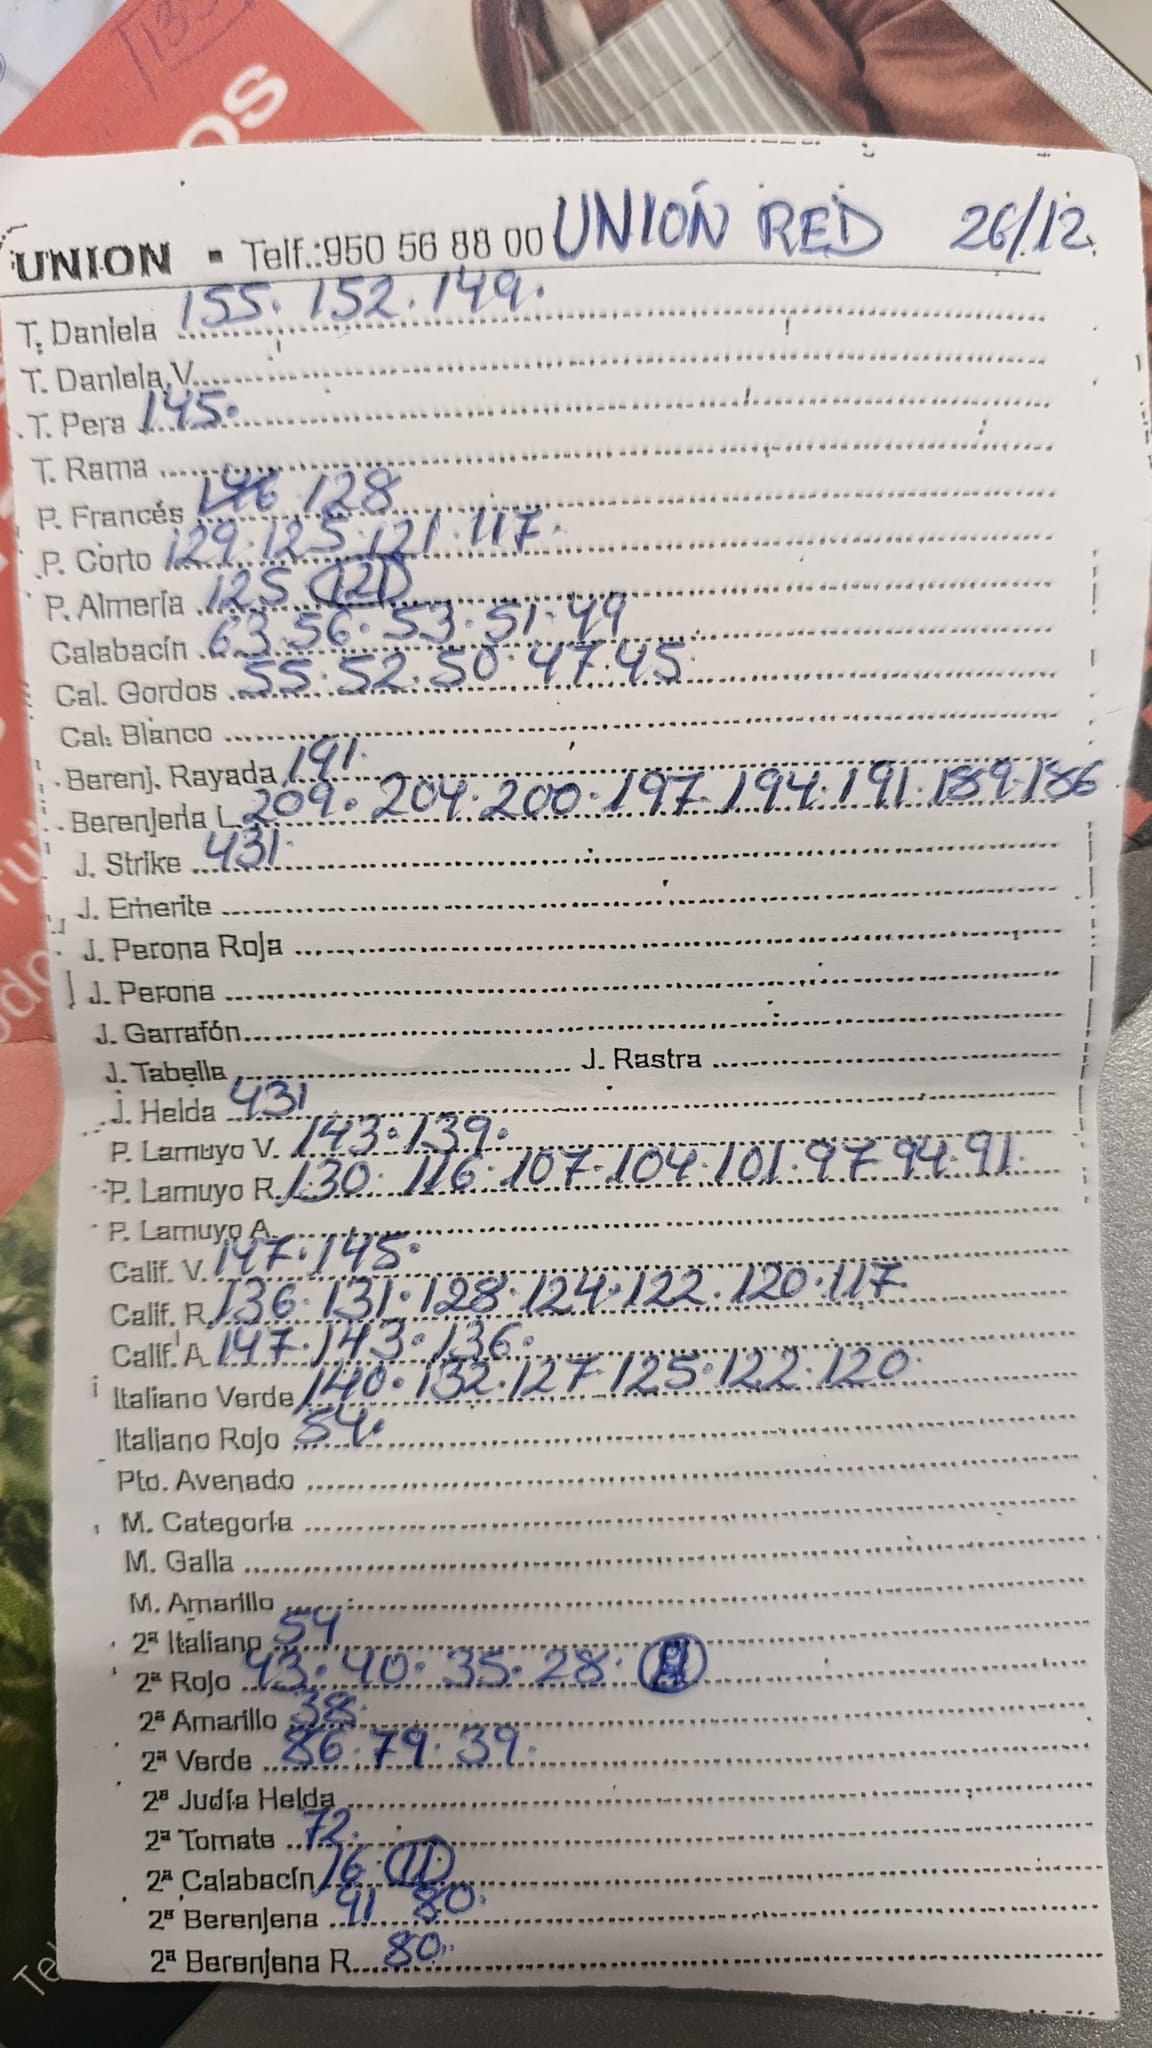 OS
UNION ▪ Telf.:950 56 88 00 UNIÓN RED 26/12
T. Daniela 155. 152. 149.
T. Daniela V.
T. Pera 145.
T. Rama
P. Francés 128
P. Corto 129. 125. 121. 117.
P. Almería 125 (121)
Calabacín 63. 56. 53. 51. 49
Cal. Gordos 55. 52. 50. 47. 45.
Cal. Blanco
Berenj. Rayada 191.
Berenjena L. 209. 204. 200. 197. 194. 191. 189. 186
J. Strike 431.
J. Emerite
J. Perona Roja
J. Perona
J. Garrafón
J. Tabella J. Rastra
J. Helda 431
P. Lamuyo V. 143. 139.
P. Lamuyo R. 130. 116. 107. 104. 101. 97 94. 91.
P. Lamuyo A.
Calif. V. 147. 145.
Calif. R. 136. 131. 128. 124. 122. 120. 117.
Calif. A. 147. 143. 136.
Italiano Verde 140. 132. 127. 125. 122. 120.
Italiano Rojo 54.
Pto. Avenado
M. Categoría
M. Galla
M. Amarillo
2ª Italiano 54
2ª Rojo 43. 40. 35. 28.
2ª Amarillo 38.
2ª Verde 86. 79. 39.
2ª Judía Helda
2ª Tomate 72.
2ª Calabacín 16 (11)
2ª Berenjena 91 80.
2ª Berenjena R. 80.